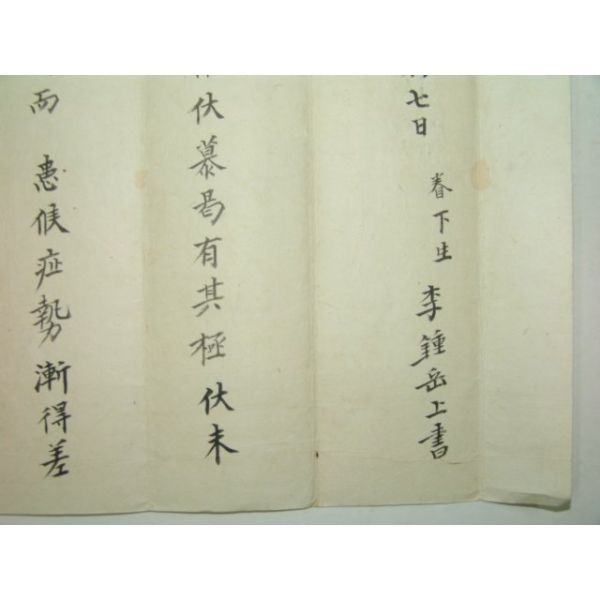 七日 眷下生 李鍾岳上書
伏慕曷有其極 伏未
而 患候症勢漸得差